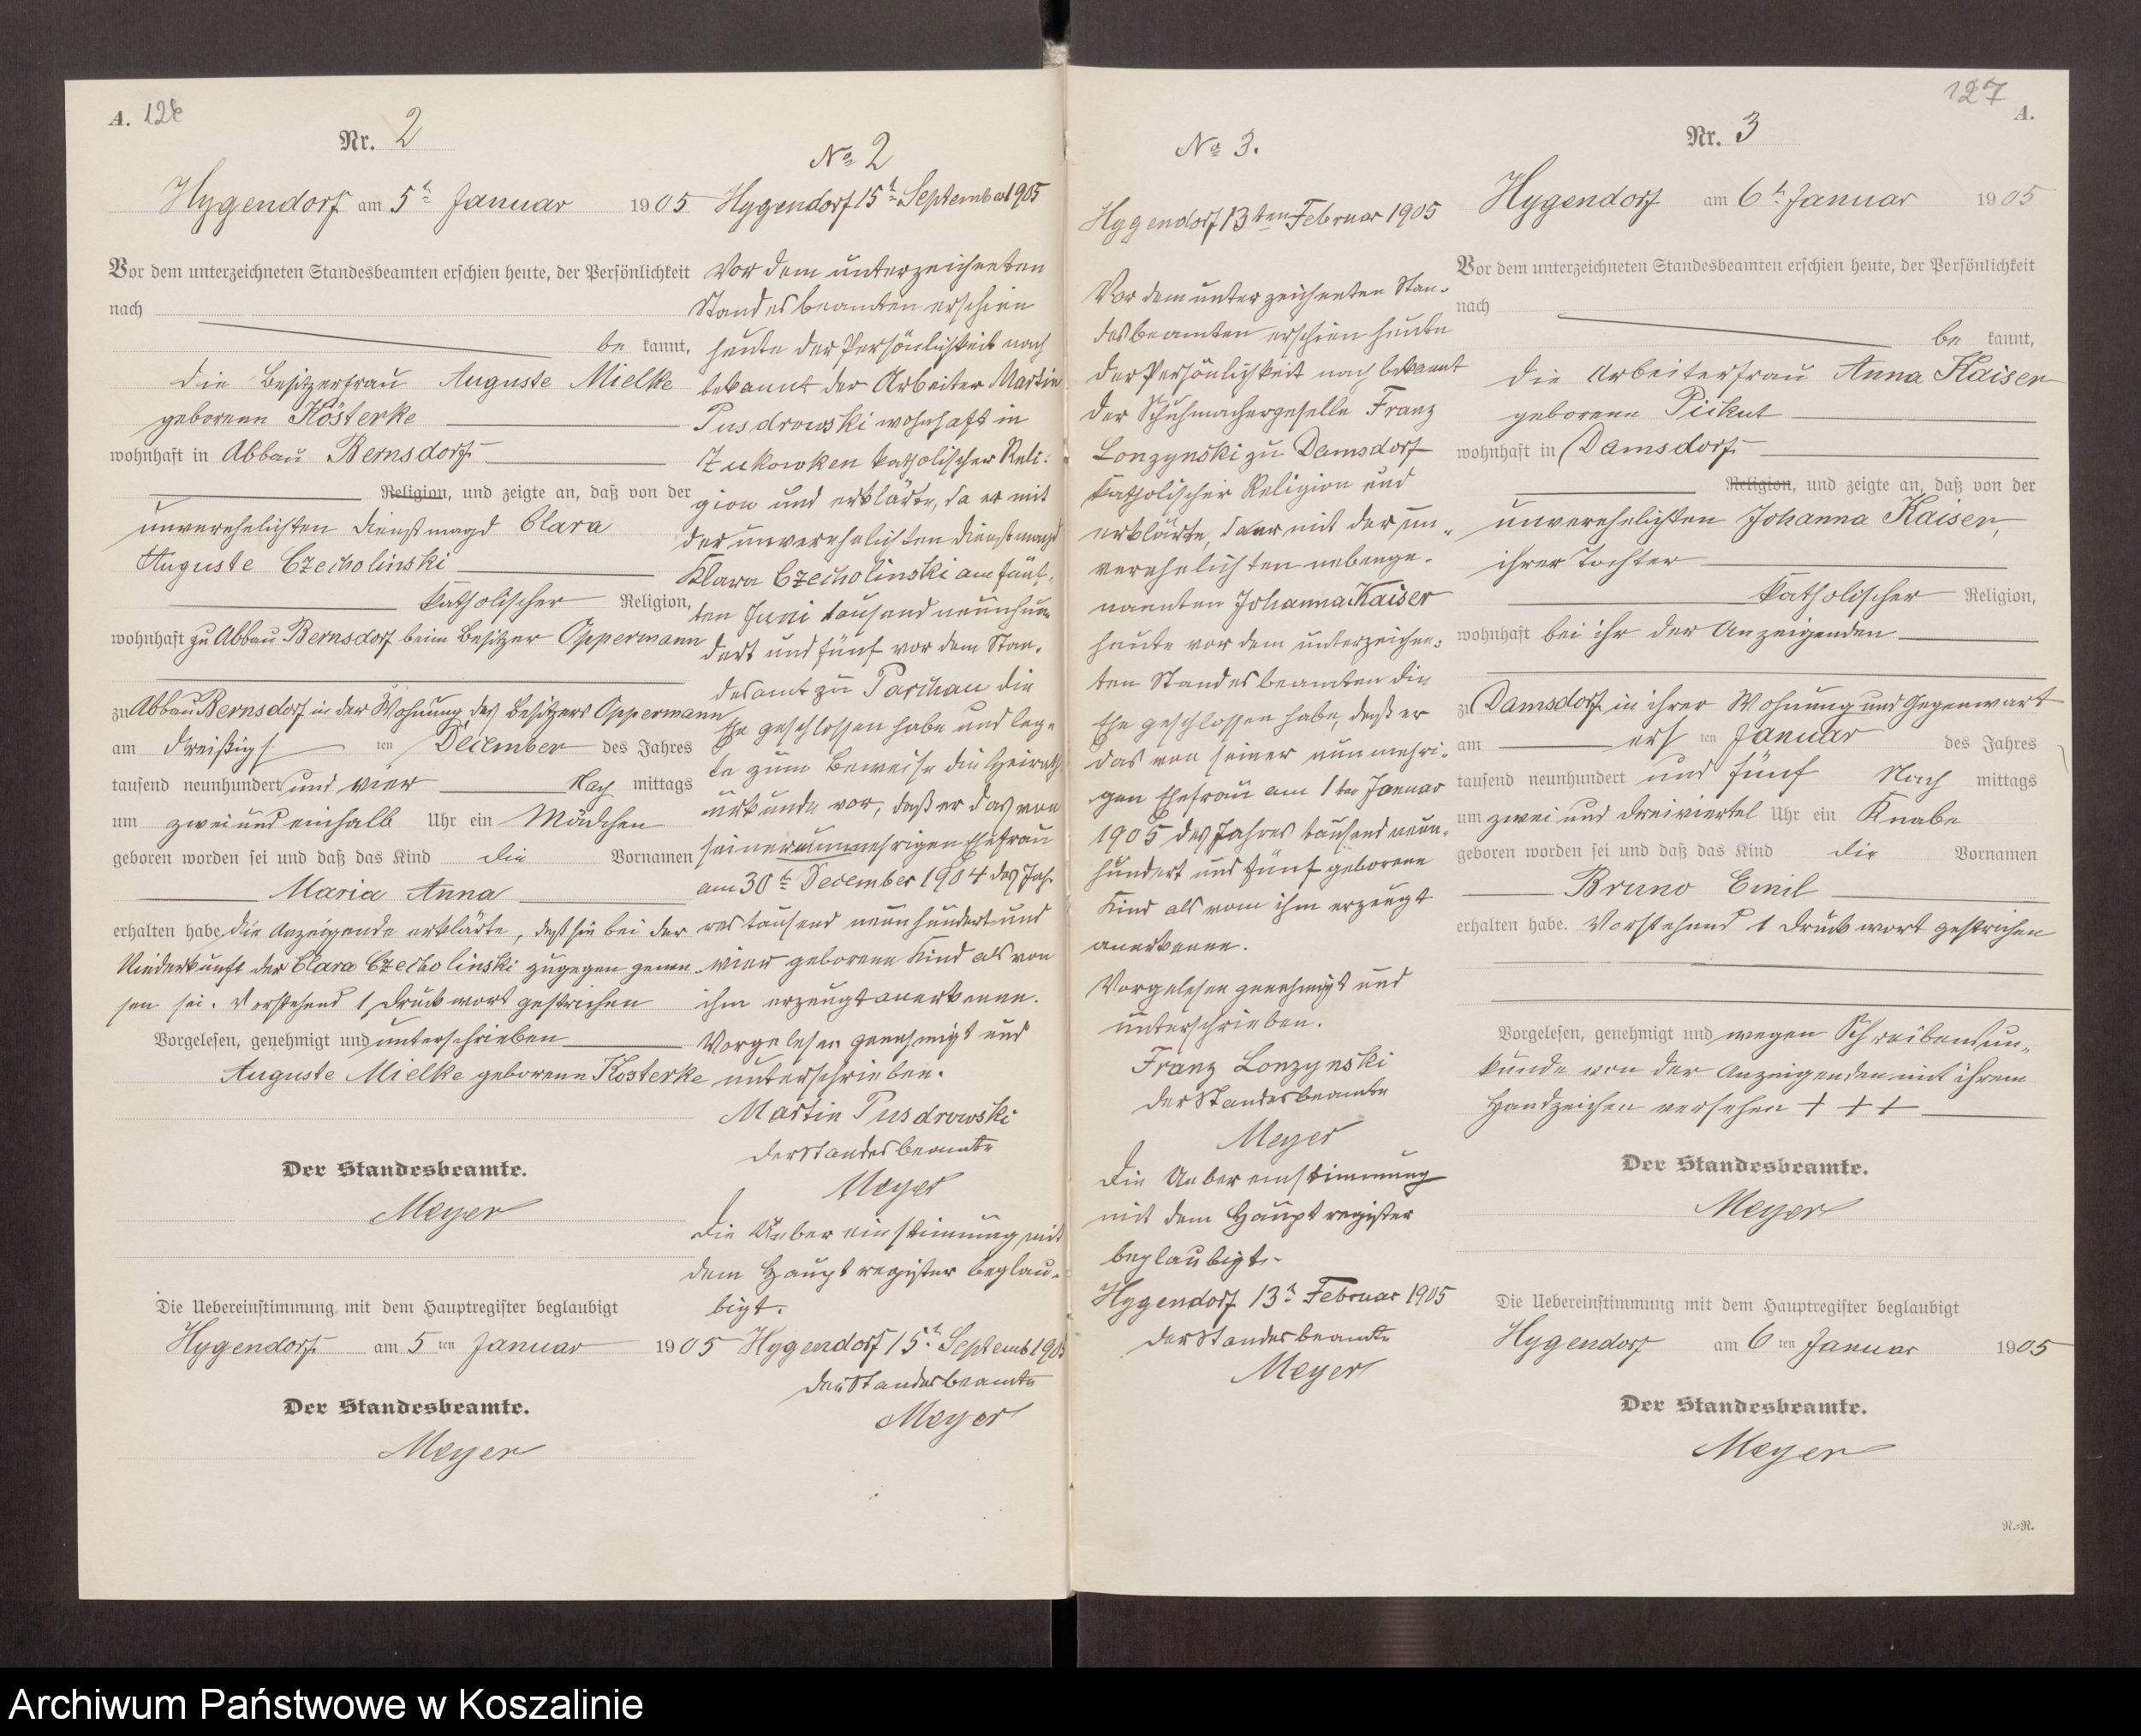 A. 126
Nr. 2
Hygendorf am 5t Januar 1905
Vor dem unterzeichneten Standesbeamten erschien heute, der Persönlichkeit
nach
be kannt,
die Besitzerfrau Auguste Mielke
geborene Kösterke
wohnhaft in Abbau Bernsdorf
Religion, und zeigte an, daß von der
unverehelichten Dienstmagd Clara
Auguste Czecholinski
katholischer Religion,
wohnhaft zu Abbau Bernsdorf beim Besitzer Oppermann
zu Abbau Bernsdorf in der Wohnung des Besitzers Oppermann
am dreißigs ten December des Jahres
tausend neunhundert und vier Nach mittags
um zwei und einhalb Uhr ein Mädchen
geboren worden sei und daß das Kind die Vornamen
Maria Anna
erhalten habe, die Anzeigende erklärte, daß sie bei der
Niederkunft der Clara Czecholinski zugegen gewe
sen sei. Vorstehend 1 Druckwort gestrichen
Vorgelesen, genehmigt und unterschrieben
Auguste Mielke geborene Kosterke
Der Standesbeamte.
Meyer
Die Uebereinstimmung mit dem Hauptregister beglaubigt
Hygendorf am 5 ten Januar 1905
Der Standesbeamte.
Meyer
No 2
Hygendorf 15t September 1905
Vor dem unterzeichneten
Standesbeamten erschien
heute der Persönlichkeit nach
bekannt der Arbeiter Martin
Pusdrowski wohnhaft in
Zukowken katholischer Reli-
gion und erklärte, da er mit
der unverehelichten Dienstmagd
Klara Czecholinski am fünf-
ten Juni tausend neunhun-
dert und fünf vor dem Stan-
desamt zu Parchau die
Ehe geschlossen habe und leg-
te zum Beweise die Heirats
urkunde vor, daß er das von
seiner nunmehrigen Ehefrau
am 30t December 1904 des Jah-
res tausend neunhundert und
vier geborene Kind als von
ihm erzeugt anerkenne.
Vorgelesen genehmigt und
unterschrieben.
Martin Pusdrowski
der Standesbeamte
Meyer
Die Uebereinstimmung mit
dem Hauptregister beglau-
bigt.
Hygendorf 15t Septemb 1905
der Standesbeamte
Meyer
No 3.
Hygendorf 13ten Februar 1905
Vor dem unterzeichneten Stan-
desbeamten erschien heute
der Persönlichkeit nach bekannt
der Schuhmachergeselle Franz
Lonzynski zu Damsdorf
katholischer Religion und
erklärte, da er mit der un-
verehelichten nebenge-
nannten Johanna Kaiser
heute vor dem unterzeichne-
ten Standesbeamten die
Ehe geschlossen habe, daß er
das von seiner nunmehri-
gen Ehefrau am 1ten Januar
1905 des Jahres tausend neun-
hundert und fünf geborene
Kind als vom ihm erzeugt
anerkenne.
Vorgelesen genehmigt und
unterschrieben.
Franz Lonzynski
der Standesbeamte
Meyer
Die Uebereinstimmung
mit dem Hauptregister
beglaubigt.
Hygendorf 13t Februar 1905
der Standesbeamte
Meyer
127
A.
Nr. 3
Hygendorf am 6t Januar 1905
Vor dem unterzeichneten Standesbeamten erschien heute, der Persönlichkeit
nach
be kannt,
die Arbeiterfrau Anna Kaiser
geborene Piekut
wohnhaft in Damsdorf
Religion, und zeigte an, daß von der
unverehelichten Johanna Kaiser,
ihrer Tochter
katholischer Religion,
wohnhaft bei ihr der Anzeigenden
zu Damsdorf in ihrer Wohnung und Gegenwart
am ers ten Januar des Jahres
tausend neunhundert und fünf Nach mittags
um zwei und dreiviertel Uhr ein Knabe
geboren worden sei und daß das Kind die Vornamen
Bruno Emil
erhalten habe. Vorstehend 1 Druckwort gestrichen
Vorgelesen, genehmigt und wegen Schreibensun-
kunde von der Anzeigenden mit ihrem
Handzeichen versehen + + +
Der Standesbeamte.
Meyer
Die Uebereinstimmung mit dem Hauptregister beglaubigt
Hygendorf am 6 ten Januar 1905
Der Standesbeamte.
Meyer
N.-R.
Archiwum Państwowe w Koszalinie